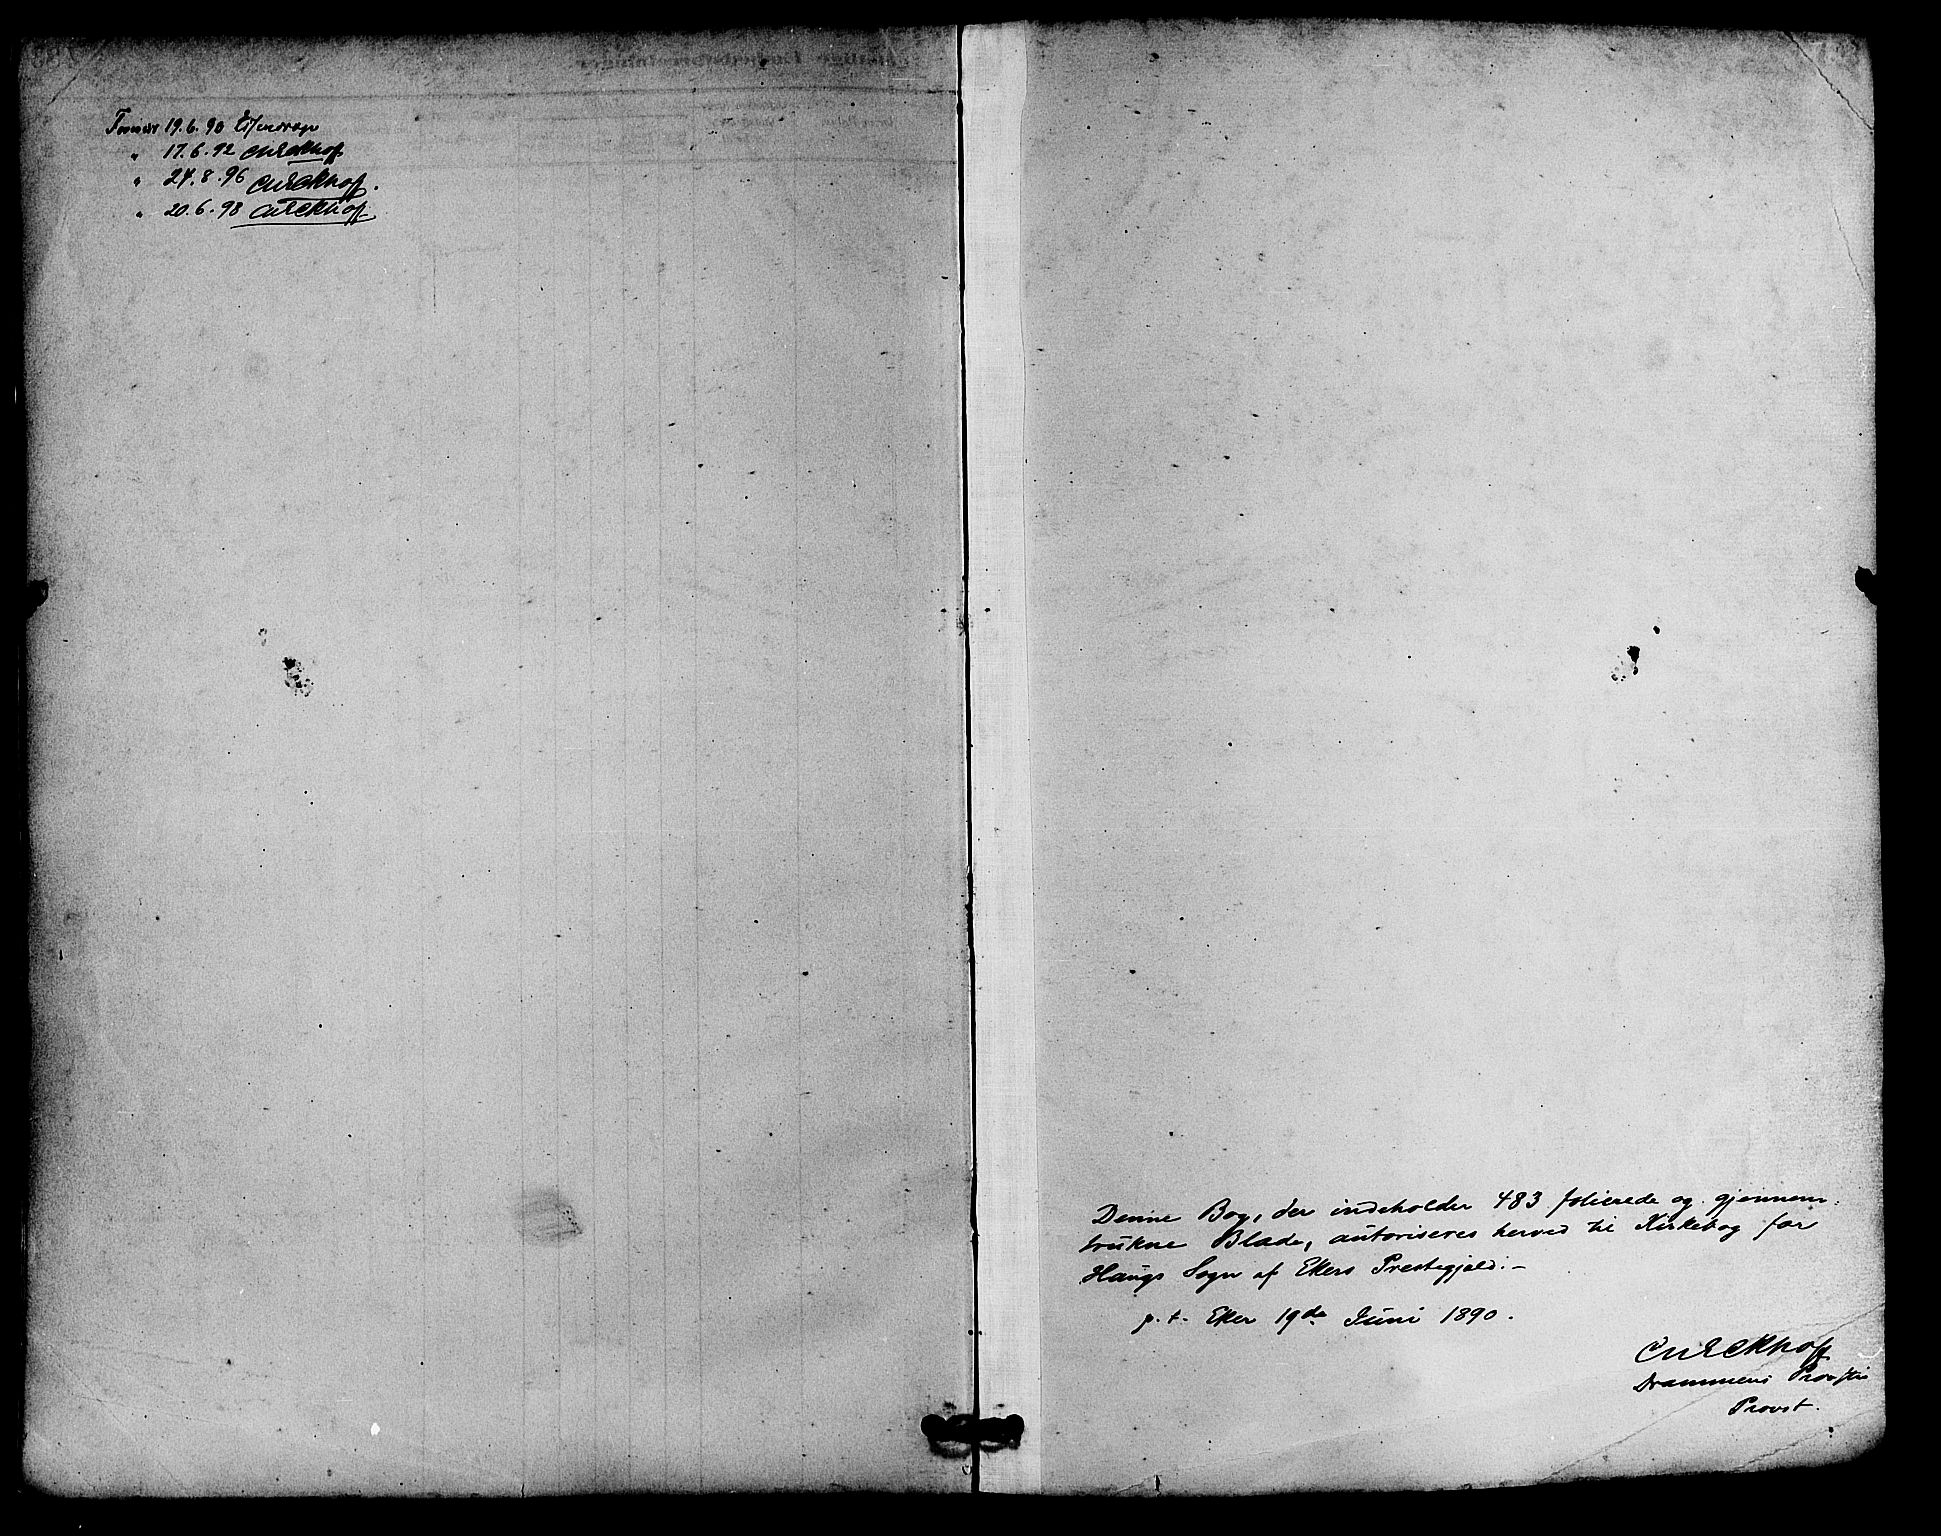 19.6.90
" 17.6.92 CNEckhoff
" 24.8.96 CNEckhoff.
" 20.6.98 CNEckhoff
Denne Bog, der indeholder 483 folierede og gjennem-
trukne Blade, autoriseres herved til Kirkebog for
Haugs Sogn af Ekers Prestegjeld.-
p.t. Eker 19de Juni 1890.
CNEckhoff
Drammens Provsties
Provst.